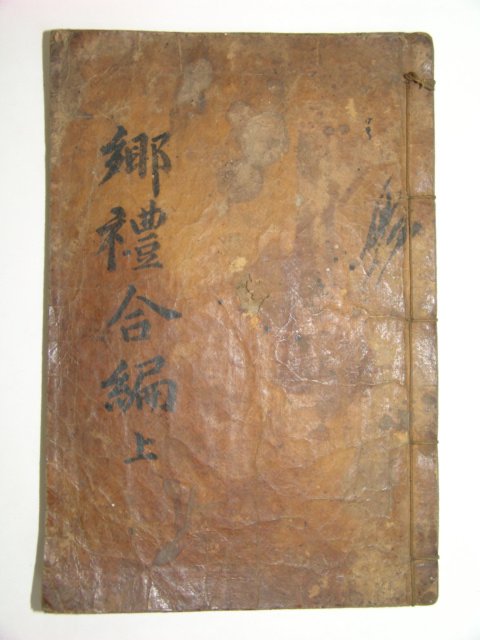 鄕禮合編上